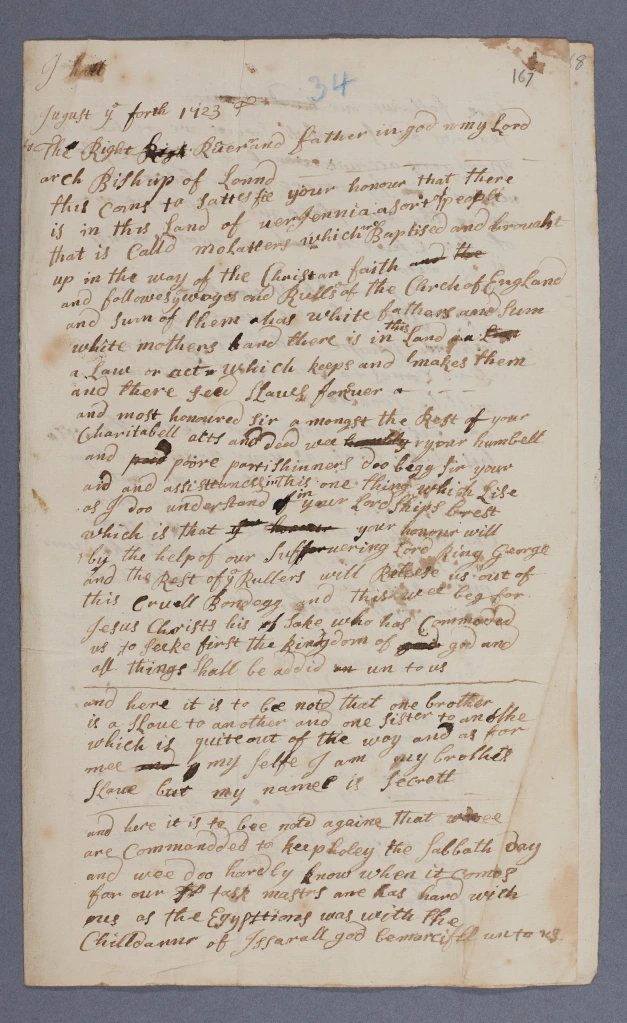 34
167
8
August ye forth 1723
to The Right Reuerand father in god my Lord
arch Bishup of Lonnd
this coms to sattesfie your honour that there
is in this Land of uerJennia a sort of people
that is Calld molatters which are Baptised and brouaht
up in the way of the Christan faith and the
and followes ye wayes and Rulles of the Chrch of England
and sum of them has white fathers and sum
white mothers and there is in this Land
a Law or act which keeps and makes them
and there seed slaves foreuer
and most honoured sir a mongst the Rest of your
Charitabell acts and deed wee your humbell
and poore partishinners doo begg Sir your
aid and assisttancse in this one thing which Lise
as J doo understand in your LordShips brest
which is that your honour will
by the help of our Suffervering Lord King George
and the Rest of ye Rullers will Releese us out of
this Cruell Bondegg and this wee beg for
Jesus Christs his sake who has Commeded
us to seeke first the kingdom of god and
all things shall be addid un to us
and here it is to bee notd that one brother
is a slave to another and one sister to an othe
which is quite out of the way and as for
mee my selfe J am my brothers
slave but my name is secrett
and here it is to bee notd againe that wee
are commandded to keep holey the Sabbath day
and wee doo hardly know when it comes
for our task mastrs are has hard with
us as the Egypttions was with the
Chilldann of Jssarall god be marcifll unto us